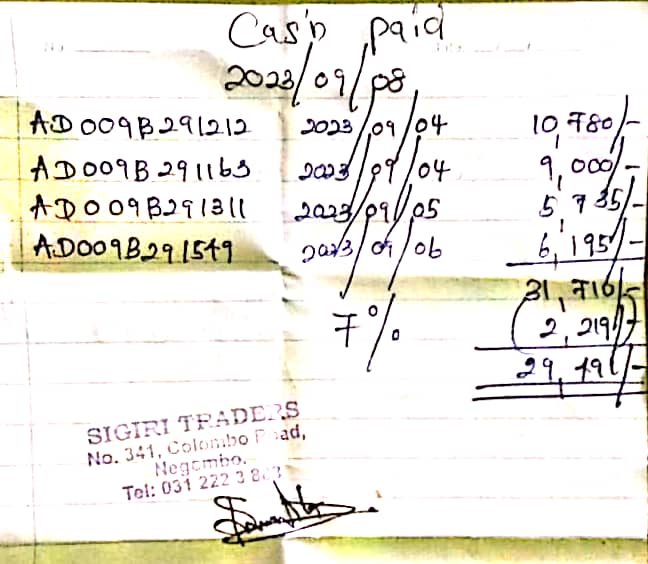 Cash paid
2023/09/08
AD009B291212 2023/09/04 10,780/-
AD009B291163 2023/09/04 9,000/-
AD009B291311 2023/09/05 5,735/-
AD009B291549 2023/09/06 6,195/-
31,710/-
7% (2,219/-)
29,491/-
SIGIRI TRADERS
No. 341, Colombo Road,
Negombo.
Tel: 031 222 3